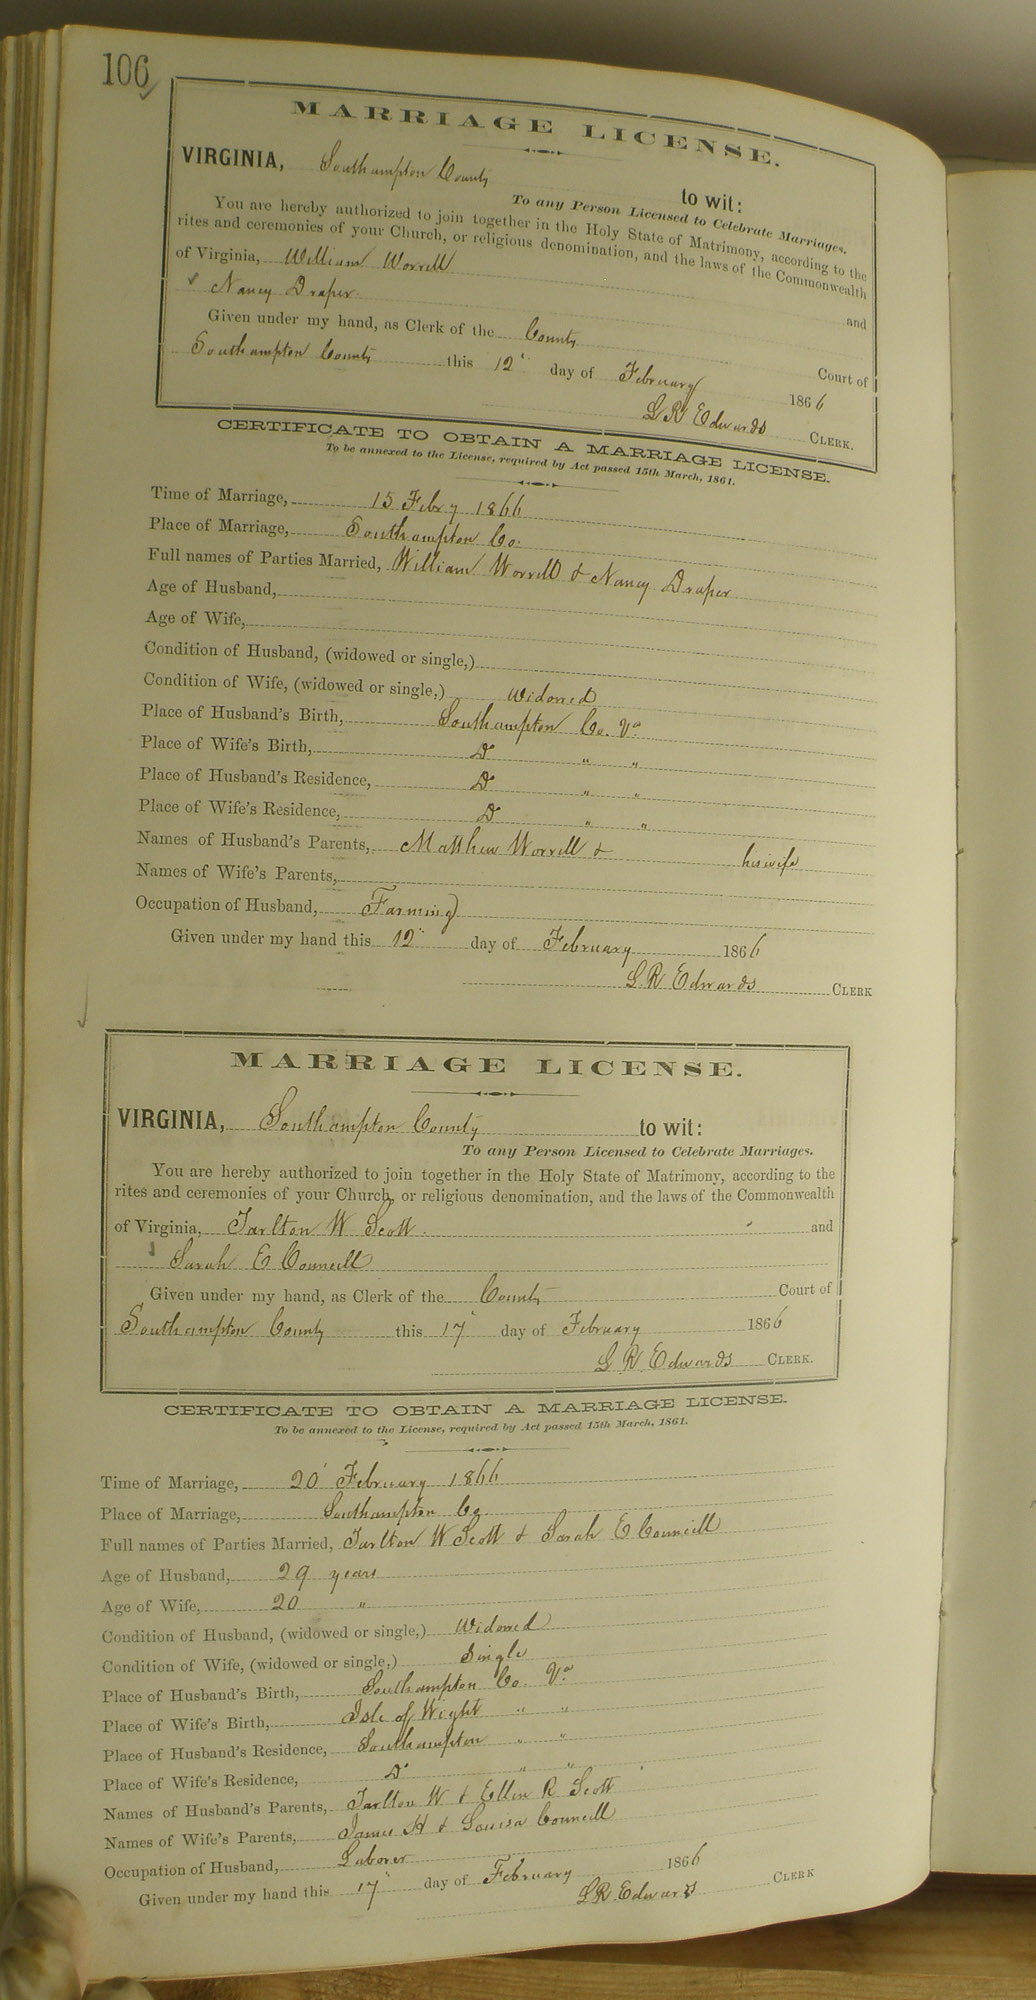 106
MARRIAGE LICENSE.
VIRGINIA, Southampton County to wit:
To any Person Licensed to Celebrate Marriages.
You are hereby authorized to join together in the Holy State of Matrimony, according to the
rites and ceremonies of your Church, or religious denomination, and the laws of the Commonwealth
of Virginia, William Worrell and
Nancy Draper
Given under my hand, as Clerk of the County Court of
Southampton County this 12" day of February 1866
L R Edwards CLERK.
CERTIFICATE TO OBTAIN A MARRIAGE LICENSE.
To be annexed to the License, required by Act passed 15th March, 1861.
Time of Marriage, 15 Febry 1866
Place of Marriage, Southampton Co.
Full names of Parties Married, William Worrell & Nancy Draper
Age of Husband,
Age of Wife,
Condition of Husband, (widowed or single,)
Condition of Wife, (widowed or single,) Widowed
Place of Husband's Birth, Southampton Co. Va
Place of Wife's Birth, Do " "
Place of Husband's Residence, Do " "
Place of Wife's Residence, Do " "
Names of Husband's Parents, Matthew Worrell & his wife
Names of Wife's Parents,
Occupation of Husband, Farming
Given under my hand this 12" day of February 1866
L R Edwards CLERK
MARRIAGE LICENSE.
VIRGINIA, Southampton County to wit:
To any Person Licensed to Celebrate Marriages.
You are hereby authorized to join together in the Holy State of Matrimony, according to the
rites and ceremonies of your Church, or religious denomination, and the laws of the Commonwealth
of Virginia, Tarlton W Scott and
Sarah E Councill
Given under my hand, as Clerk of the County Court of
Southampton County this 17 day of February 1866
L R Edwards CLERK.
CERTIFICATE TO OBTAIN A MARRIAGE LICENSE.
To be annexed to the License, required by Act passed 15th March, 1861.
Time of Marriage, 20 February 1866
Place of Marriage, Southampton Co.
Full names of Parties Married, Tarlton W Scott & Sarah E Councill
Age of Husband, 29 years
Age of Wife, 20 "
Condition of Husband, (widowed or single,) Widowed
Condition of Wife, (widowed or single,) Single
Place of Husband's Birth, Southampton Co. Va
Place of Wife's Birth, Isle of Wight " "
Place of Husband's Residence, Southampton " "
Place of Wife's Residence, Do " "
Names of Husband's Parents, Tarlton W & Ellen R Scott
Names of Wife's Parents, James H & Louisa Councill
Occupation of Husband, Laborer
Given under my hand this 17" day of February 1866
L R Edwards CLERK